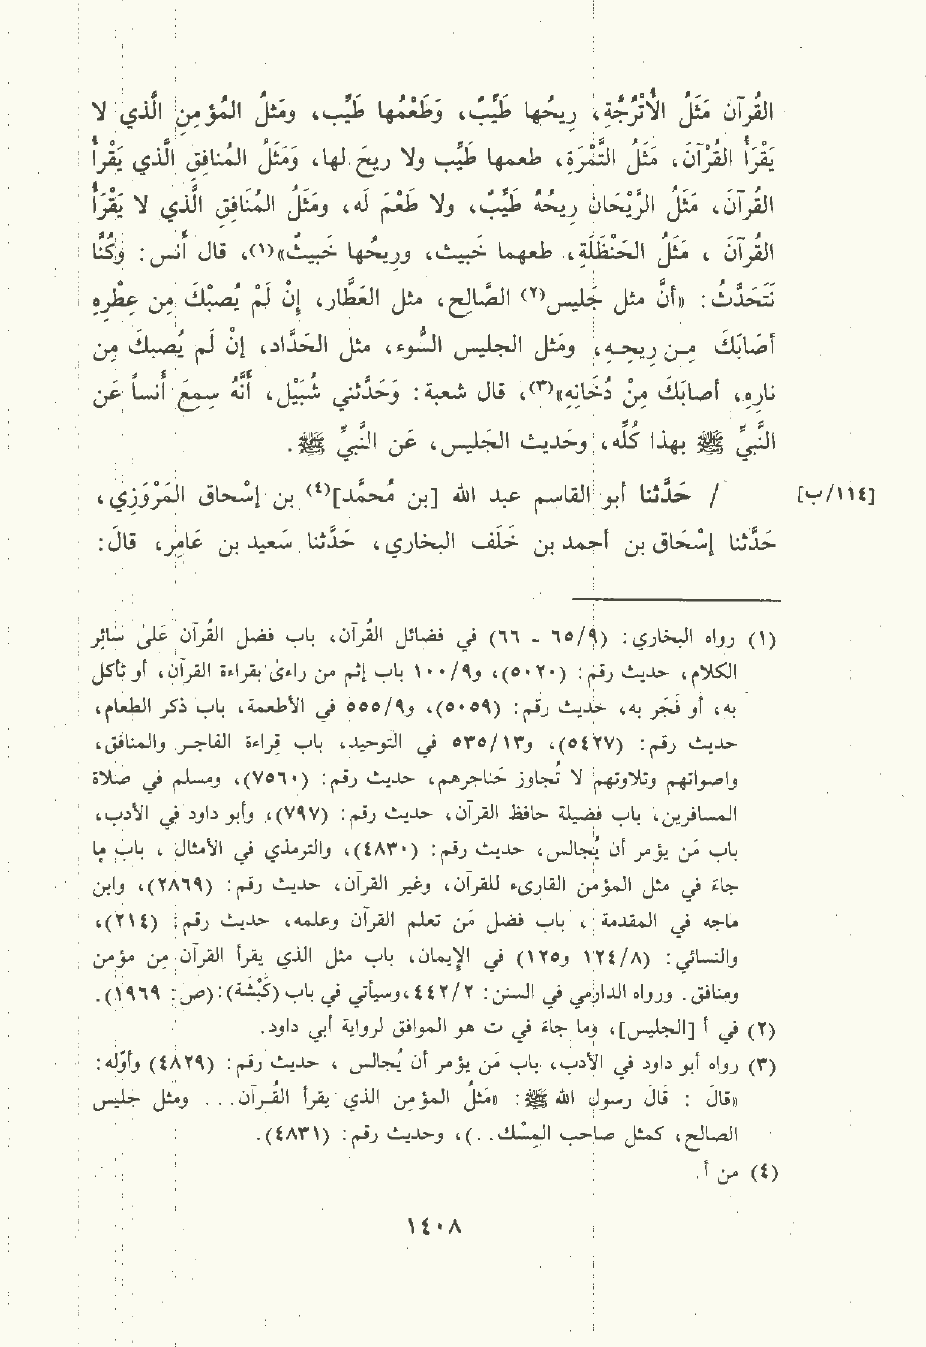 القُرآن مَثَلُ الأُتْرُجَّةِ، ريحُها طَيِّبٌ، وَطَعْمُها طَيِّب، ومَثلُ المُؤمِنِ الَّذي لا
يَقْرَأُ القُرْآنَ، مَثَلُ التَّمْرَةِ، طعمها طَيِّبٌ ولا ريحَ لها، وَمَثَلُ المُنافِقِ الَّذي يَقْرأُ
القُرآنَ، مَثَلُ الرَّيْحَانِ ريحُهُ طَيِّبٌ، ولا طَعْمَ لَه، ومَثَلُ المُنَافِقِ الَّذي لا يَقْرَأُ
القُرآنَ ، مَثَلُ الحَنْظَلَةِ، طعمها خَبيث، وريحُها خَبيثٌ»(١)، قال أَنس: وكُنَّا
نَتَحَدَّثُ: «أَنَّ مثل جَليسِ(٢) الصَّالِحِ، مثل العَطَّارِ، إنْ لَمْ يُصِبْكَ مِن عِطْرِهِ
أصَابَكَ مِن ريحِهِ، ومَثل الجليسِ السُّوءِ، مثل الحَدَّادِ، إنْ لَم يُصبكَ مِن
نارِهِ، أصابَكَ مِنْ دُخَانِهِ»(٣)، قال شعبة: وَحَدَّثني شُبَيْل، أَنَّهُ سَمِعَ أنساً عَن
النَّبيِّ ﷺ بهذا كُلِّه، وحَديث الجَليس، عَن النَّبيِّ ﷺ.
[١١٤/ب] / حَدَّثنا أبو القاسم عبد الله [بن مُحمَّد](٤) بن إسْحاق المَرْوَزِي،
حَدَّثنا إسْحاق بن أحمد بن خَلَف البخاري، حَدَّثنا سَعيد بن عَامِر، قالَ:
(١) رواه البخاري: (٩/ ٦٥ - ٦٦) في فضائل القُرآن، باب فضل القُرآن عَلَى سائِر
الكلام، حديث رقم: (٥٠٢٠)، و٩/ ١٠٠ باب إثم من راءى بقراءة القرآن، أو تأكل
به، أو فَجَر به، حديث رقم: (٥٠٥٩)، و٩/ ٥٥٥ في الأطعمة، باب ذكر الطعام،
حديث رقم: (٥٤٢٧)، و١٣/ ٥٣٥ في التوحيد، باب قراءة الفاجر والمنافق،
واصواتهم وتلاوتهم لا تُجاوز حَناجرهم، حديث رقم: (٧٥٦٠)، ومسلم في صلاة
المسافرين، باب فضيلة حافظ القرآن، حديث رقم: (٧٩٧)، وأبو داود في الأدب،
باب مَن يؤمر أن يُجالس، حديث رقم: (٤٨٣٠)، والترمذي في الأمثال ، باب ما
جاءَ في مثل المؤمن القارىء للقرآن، وغير القرآن، حديث رقم: (٢٨٦٩)، وابن
ماجه في المقدمة ، باب فضل مَن تعلم القرآن وعلمه، حديث رقم: (٢١٤)،
والنسائي: (٨/ ١٢٤ و١٢٥) في الإيمان، باب مثل الذي يقرأ القرآن مِن مؤمن
ومنافق. ورواه الدارمي في السنن: ٢/ ٤٤٢،وسيأتي في باب (كَبْشة):(ص: ١٩٦٩).
(٢) في أ [الجليس]، وما جاءَ في ت هو الموافق لرواية أبي داود.
(٣) رواه أبو داود في الأدب، باب مَن يؤمر أن يُجالس ، حديث رقم: (٤٨٢٩) وأوّله:
«قالَ : قالَ رسول الله ﷺ: «مَثلُ المؤمن الذي يقرأ القُرآن... ومثل جليس
الصالح، كمثل صاحب المِسْك..)، وحديث رقم: (٤٨٣١).
(٤) من أ.
١٤٠٨